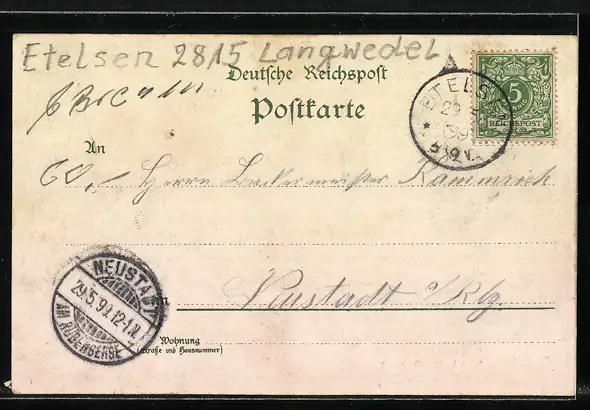 Etelsen 2815 Langwedel
Deutsche Reichspost
Postkarte
ETELSEN
29
99
8-9 V.
5
REICHSPOST
An
60,- Herrn Backermeister Kammrich
NEUSTADT
29.5.99.12-1.N.
AM RÜBENBERGE
in Neustadt a/Rbg.
Wohnung
(Straße und Hausnummer)